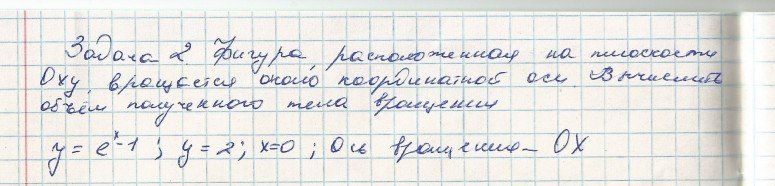 Задача 2 Фигура, расположенная на плоскости
Oxy, вращается около координатной оси. Вычислить
объём полученного тела вращения
y = eˣ-1 ; y = 2; x=0 ; Ось вращения - OX